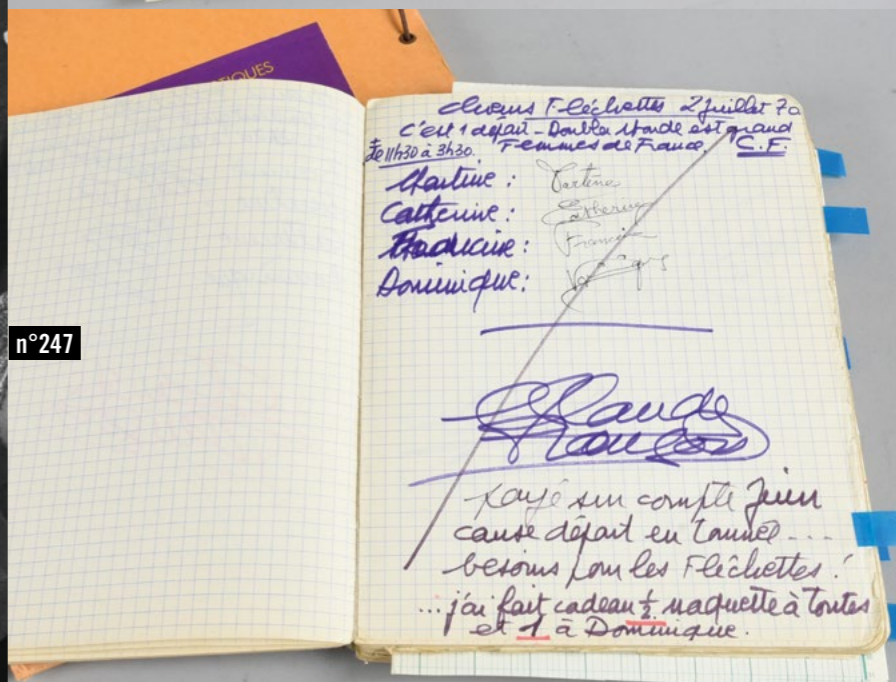 TIQUES
n°247
Fléchettes 2 juillet 70
C'est 1 départ - Double Monde est grand
de 11h30 à 3h30. Femmes de France. C.F.
Martine : Martine
Catherine : Catherine
Francine : Francine
Dominique :
Claude
François
payé sur compte Juin
cause départ en tournée - - -
besoins pour les Fléchettes !
... j'ai fait cadeau ½ maquette à toutes
et 1 à Dominique.